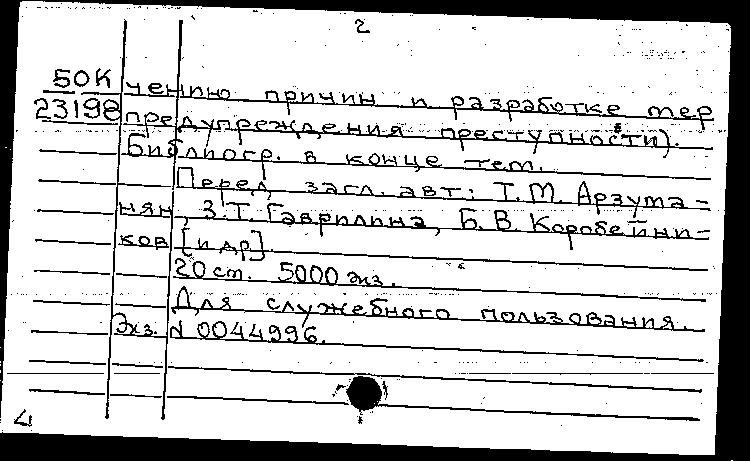 2
50К чению причин и разработке мер
23198 предупреждения преступности).
Библиогр. в конце тем.
Перед загл. авт: Т.М. Арзума-
нян, З.Т. Гаврилина, Б.В. Коробейни-
ков [и др].
20 см. 5000 экз.
Для служебного пользования.
Экз. N 0044996.